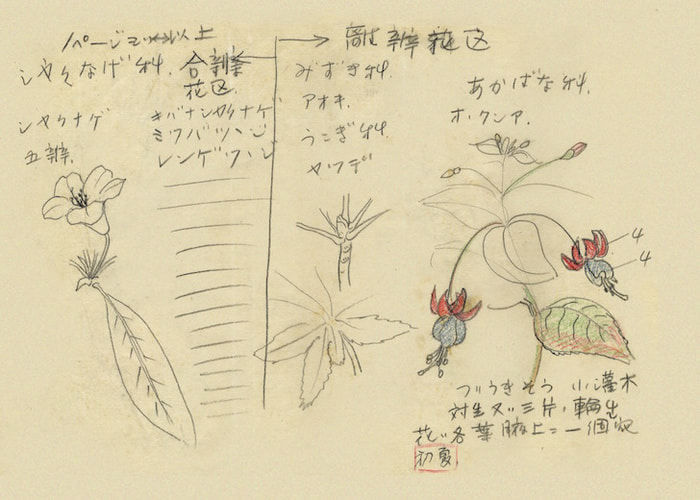 1ページ 以上
しやくなげ科. 合辦
花区.
シヤクナゲ
五辦.
キバナシヤクナゲ
ミツバツヽジ
レンゲツヽジ
離辦花区
みずき科.
アオキ.
うこぎ科.
ヤツデ
あかばな科.
ホクシア.
4
4
つりうきそう 小灌木
対生又ハ三片ノ輪生
花ハ各葉腋上ニ一個
初夏